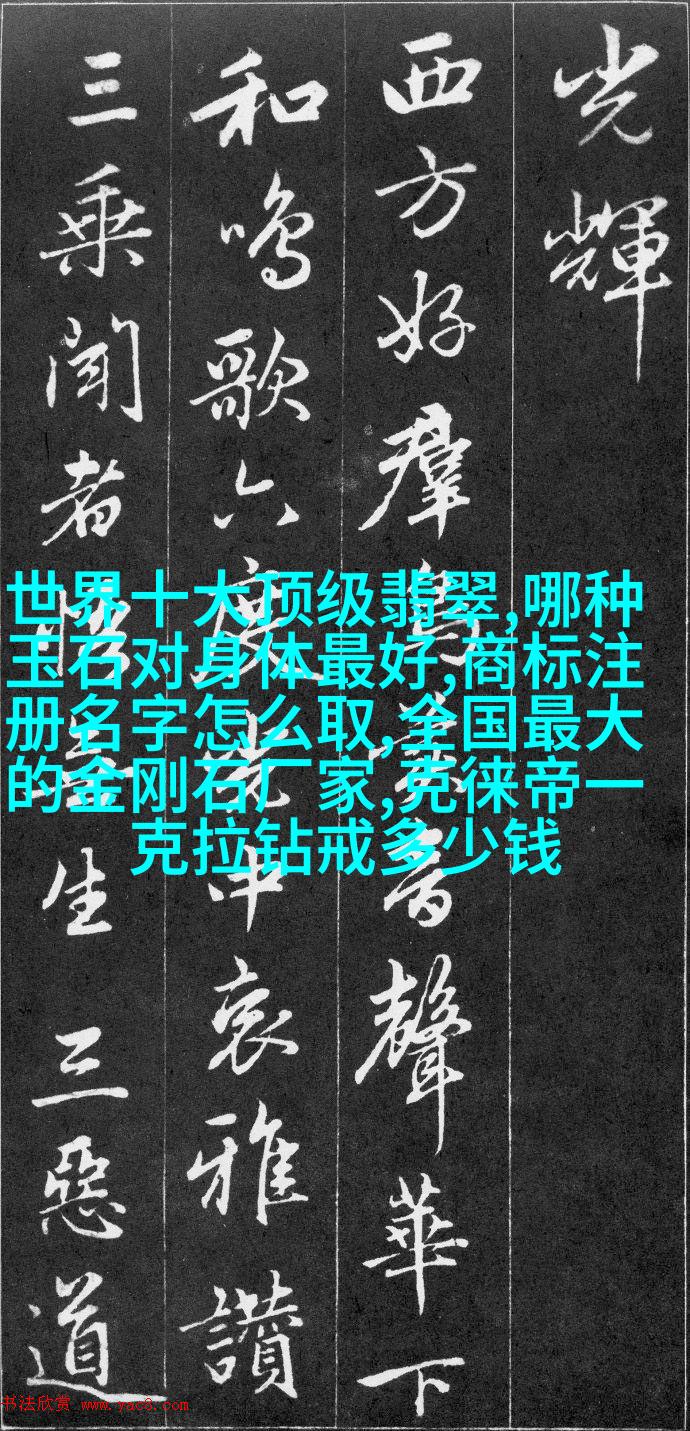 光輝
西方好羣鳥音聲華下
和鳴歌六度中哀雅讚
三乘聞者悟無生 三惡道
世界十大顶级翡翠,哪种
玉石对身体最好,商标注
册名字怎么取,全国最大
的金刚石厂家,克徕帝一
克拉钻戒多少钱
书法欣赏 www.yac8.com